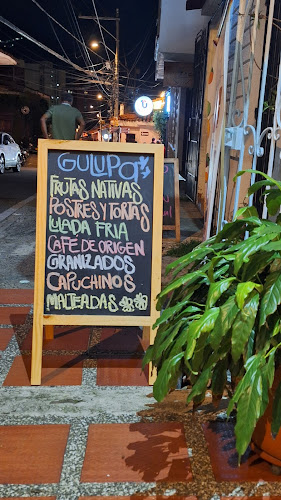 GULUPA
FRUTAS NATIVAS
POSTRES Y TORTAS
LULADA FRIA
CAFE DE ORIGEN
GRANIZADOS
CAPUCHINOS
MALTEADAS